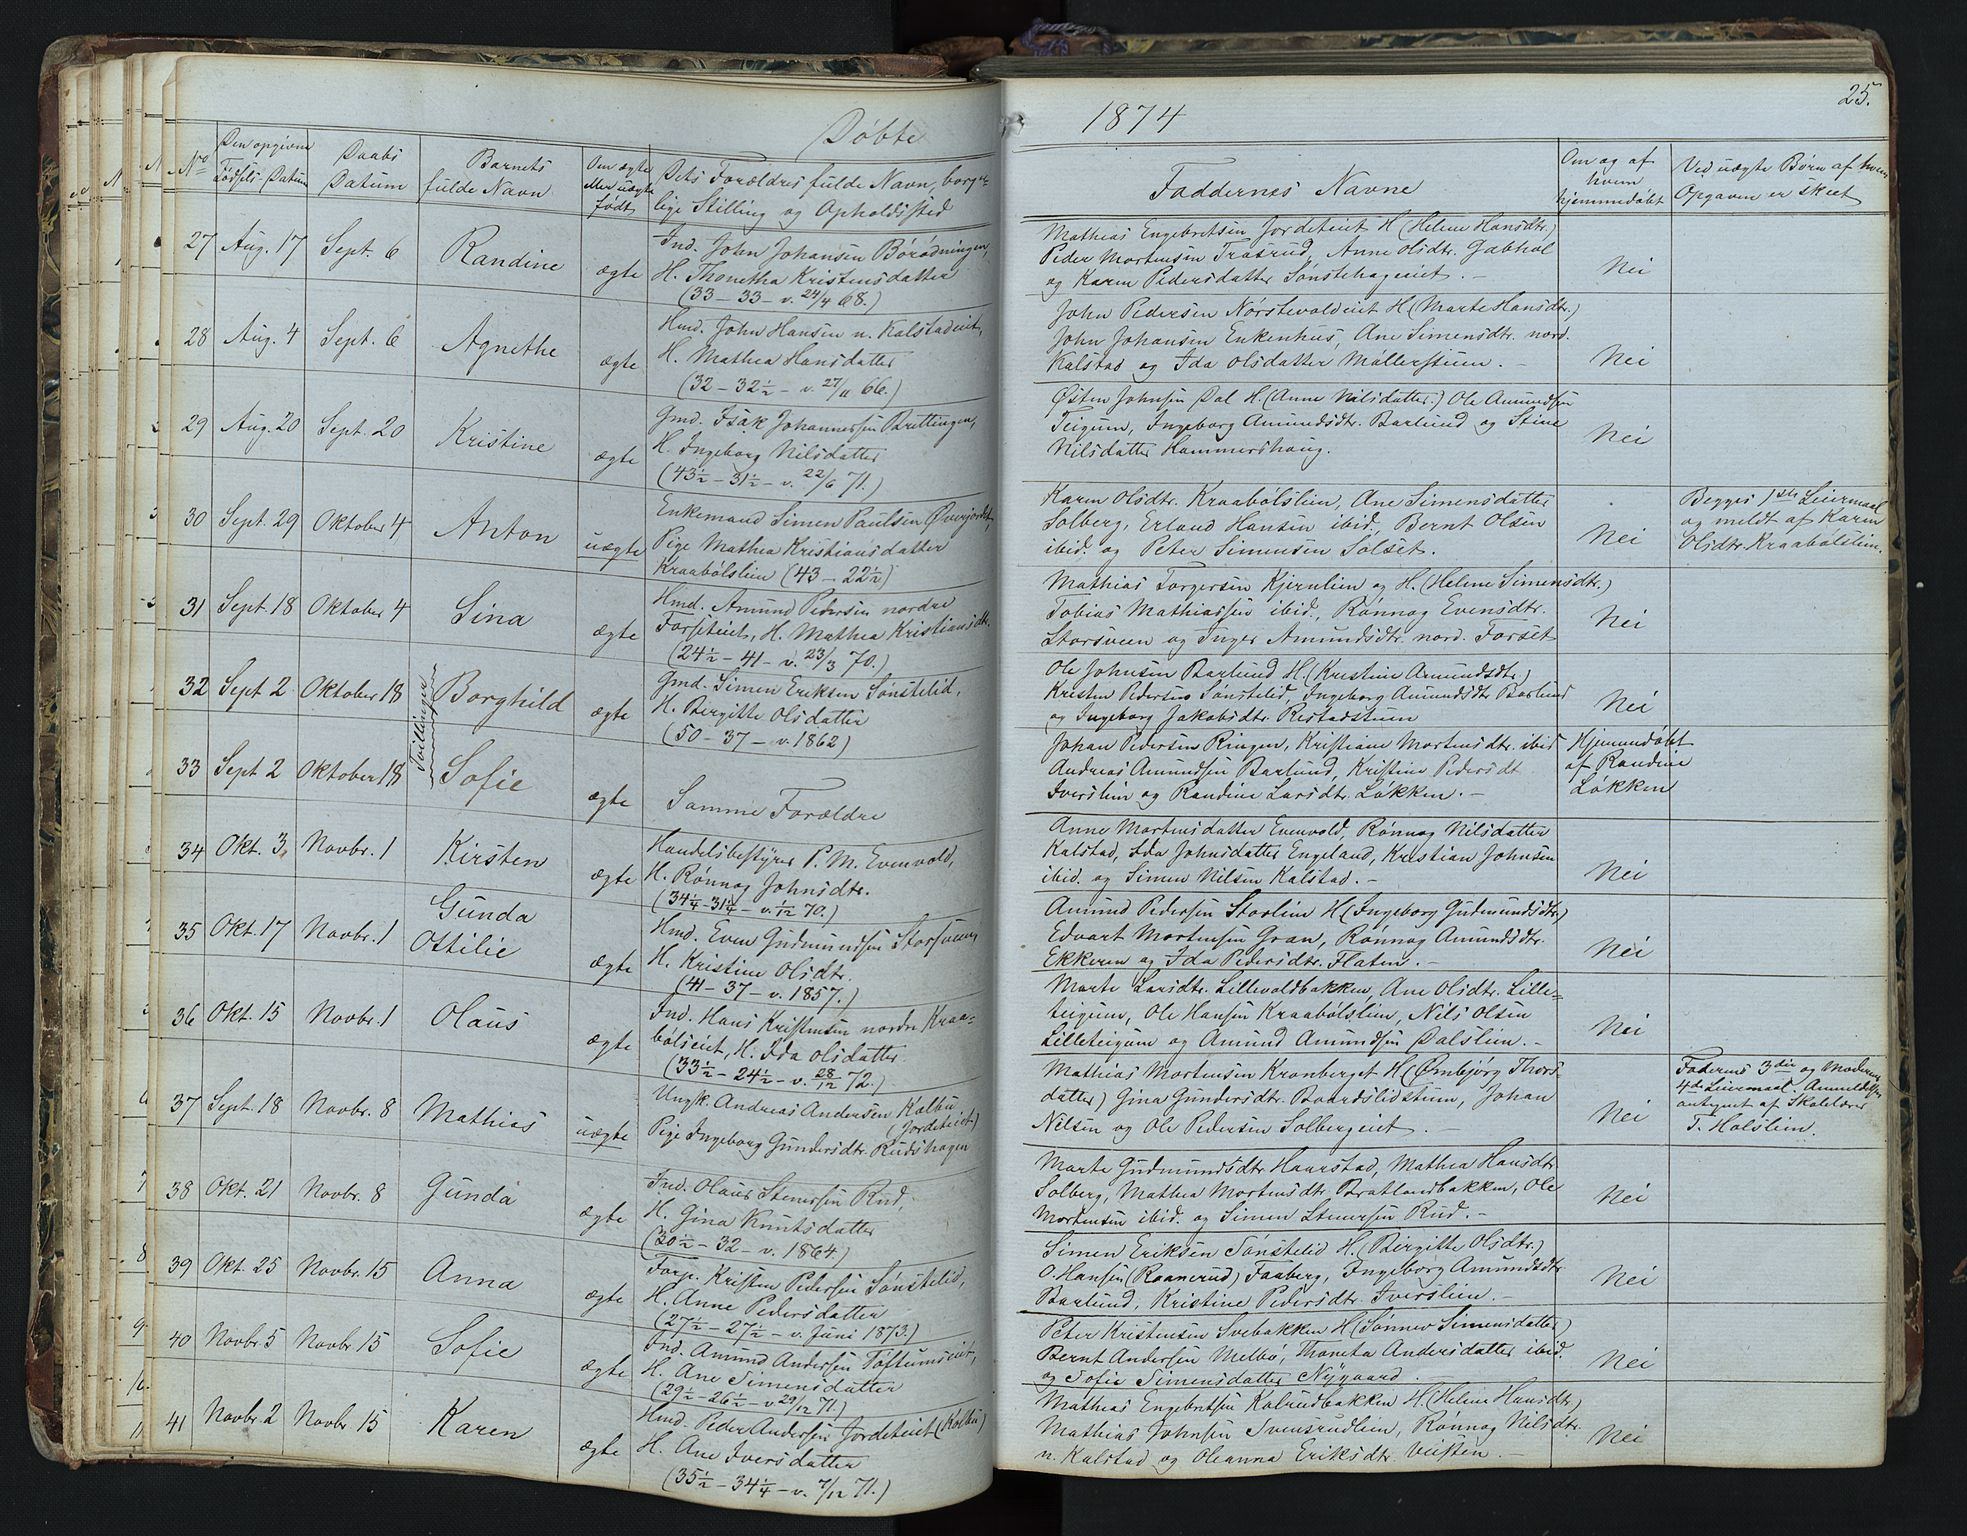 Døbte
No
Den opgivne Fødsels-Datum
Daabs Datum
Barnets fulde Navn
Om ægte eller uægte født
Dets Forældres fulde Navn, borgerlige Stilling og Opholdssted
27 Aug. 17 Sept. 6 Randine ægte
Ind. John Johansen Børødningen,
H. Thonetha Kristensdatter
(33 – 33 – v. 24/4 68.)
28 Aug. 4 Sept. 6 Agnethe ægte
Hmd. John Hansen n. Kalstadeiet,
H. Mathea Hansdatter
(32 – 32½ – v. 27/11 66.)
29 Aug. 20 Sept. 20 Kristine ægte
Gmd. Isak Johannessen Brettingen,
H. Ingeborg Nilsdatter
(43½ – 31½ – v. 22/6 71.)
30 Sept. 29 Oktober 4 Anton uægte
Enkemand Simen Paulsen Øverjordet
Pige Mathea Kristiansdatter
Kraabølslien (43 – 22½)
31 Sept. 18 Oktober 4 Sina ægte
Hmd. Amund Pedersen nordre
Forseteiet, H. Mathea Kristiansdtr.
(24½ – 41 – v. 23/3 70.)
Tvillinger
32 Sept 2 Oktober 18 Borghild ægte
Gmd. Simen Eriksen Sønstelid,
H. Birgitte Olsdatter
(50 – 37 – v. 1862)
33 Sept 2 Oktober 18 Sofie ægte
Samme Forældre
34 Okt. 3. Novbr. 1 Kirsten ægte
Handelsbestyrer P. M. Evenvold,
H. Rønnog Johnsdtr.
(34¼ – 31¼ – v. 1/12 70.)
35 Okt. 17 Novbr. 1 Gunda
Ottilie ægte
Hmd. Even Gudmundsen Storsveen,
H. Kristine Olsdtr.
(41 – 37 – v. 1857.)
36 Okt. 15 Novbr. 1 Olaus ægte
Ind. Hans Kristensen nordre Kraa-
bølseiet, H. Ida Olsdatter.
(33½ – 24½ – v. 28/12 72.)
37 Sept. 18 Novbr. 8 Mathias uægte
Ungk. Andreas Andersen Kalbu
(Jordeteiet)
Pige Ingeborg Gundersdtr. Rudshagen
38 Okt. 21 Novbr. 8 Gunda ægte
Ind. Olaus Stenersen Rud,
H. Gina Knutsdatter
(30½ – 32 – v. 1864.)
39 Okt. 25 Novbr. 15 Anna ægte
Forp. Kristen Pedersen Sønstelid,
H. Anne Pedersdatter
(27½ – 27½ – v. Juni 1873.)
40 Novbr. 5 Novbr. 15 Sofie ægte
Ind. Amund Andersen Toftumseiet,
H. Ane Simensdatter
(29½ – 26½ – v. 29/12 71.)
41 Novbr. 2 Novbr. 15 Karen ægte
Hmd. Peder Andersen Jordeteiet (Kalbu)
H. Ane Iversdatter
(35½ – 34¼ – v. 7/12 71.)
1874
25.
Faddernes Navne
Om og af hvem hjemmedøbt
Ved uægte Børn af hvem Opgaven er skeet
Mathias Engebretsen Jordeteiet H (Helene Hansdtr.)
Peder Mortensen Traasrud, Anne Olsdtr. Gabhol
og Karen Pedersdatter Sønstehageeiet. –
Nei
John Pedersen Nørstevoldeiet H (Marte Hansdtr.)
John Johansen Enkenhus, Ane Simensdtr. nord.
Kalstad og Ida Olsdatter Møllerstuen. –
Nei
Østen Johnsen Dal H. (Anne Nilsdatter.) Ole Amundsen
Teigum, Ingeborg Amundsdtr. Barlund og Stine
Nilsdatter Hammershaug.
Nei
Karen Olsdtr. Kraabølslien, Ane Simensdatter
Solberg, Erland Hansen ibid, Bernt Olsen
ibid. og Peter Simensen Sølset.
Nei
Begges 1ste Leiermaal
og meldt af Karen
Olsdtr. Kraabølslien.
Mathias Torgersen Kjernlien og H. (Helene Simensdtr.)
Tobias Mathiassen ibid., Rønnog Evensdtr.
Storsveen og Inger Amundsdtr. nord. Forset
Nei
Ole Johnsen Barlund H. (Kristine Amundsdtr)
Kristen Pedersen Sønstelid, Ingeborg Amundsdtr Barlund
og Ingeborg Jakobsdtr. Ristadstuen
Nei
Johan Pedersen Ringen, Kristiane Mortensdtr. ibid
Andreas Amundsen Barlund, Kristine Pedersdt
Iverslien og Randine Larsdtr. Løkken. –
Hjemmedøbt
af Randine
Løkken
Anne Mortensdatter Evenvold, Rønnog Nilsdatter
Kalstad, Ida Johnsdatter Engeland, Kristian Johnsen
ibid. og Simen Nilsen Kalstad. –
Nei
Amund Pedersen Storlien H (Ingeborg Gudmundsdtr.)
Edvart Mortensen Gran, Rønnog Amundsdtr.
Ekkeren og Ida Pedersdtr. Flaten. –
Nei
Marte Larsdtr. Lillevoldbakken, Ane Olsdtr. Lille-
teigum, Ole Hansen Kraabølslien, Nils Olsen
Lilleteigum og Amund Amundsen Dalslien. –
Nei
Mathias Mortensen Kronberget H (Ømbjørg Thors-
datter) Gina Gundersdtr. Baardslidstuen, Johan
Nilsen og Ole Pedersen Solbergeiet.
Nei
Faderens 3die og Moderens
4de Leiermaal Anmeldelsen
antegnet af Skolelærer
T. Holslien.
Marte Gudmundsdtr. Haarstad, Mathea Hansdtr
Solberg, Mathea Mortensdtr. Bratlandbakken, Ole
Mortensen ibid. og Simen Stenersen Rud. –
Nei
Simen Eriksen Sønstelid H. (Birgitte Olsdtr.)
O. Hansen (Raanerud) Faaberg, Ingeborg Amundsdtr
Barlund, Kristine Pedersdtr. Iverslien. –
Nei
Peter Kristensen Svebakken H (Sønnev Simensdatter)
Bernt Andersen Melbø, Thoneta Andersdatter ibid.
og Sofie Simensdatter Nygaard.
Nei
Mathias Engebretsen Kalrudbakken H. (Helene Hansdtr)
Mathias Johnsen Svensrudlien, Rønnog Nilsdtr.
n. Kalstad og Oleanna Eriksdtr. Veisten. –
Nei